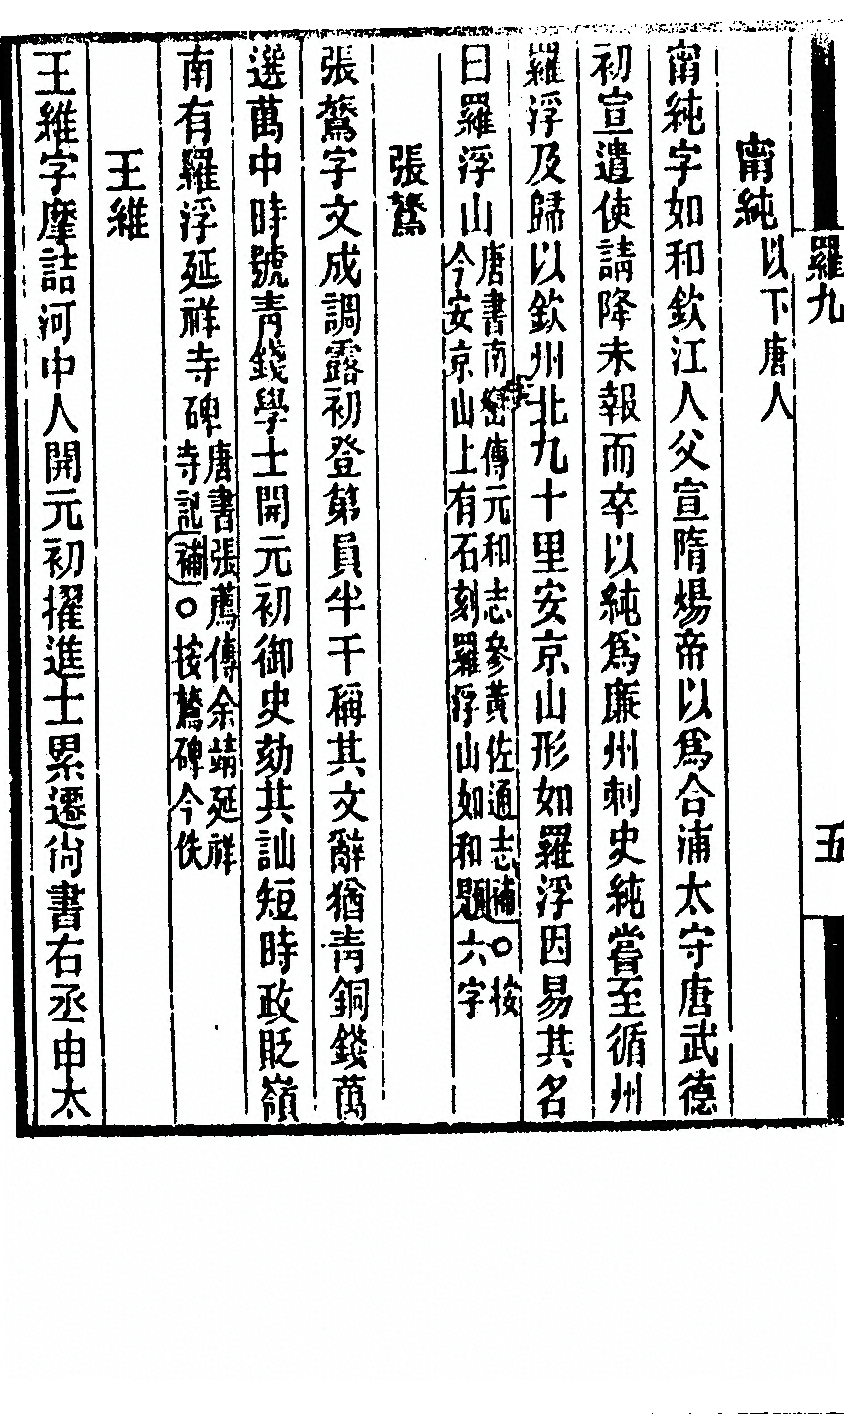 羅九
五
甯純以下唐人
甯純字如和欽江人父宣隋煬帝以爲合浦太守唐武德
初宣遣使請降未報而卒以純爲廉州刺史純嘗至循州
羅浮及歸以欽州北九十里安京山形如羅浮因易其名
曰羅浮山唐書南蠻傳元和志參黃佐通志補○按
今安京山上有石刻羅浮山如和題六字
張鷟
張鷟字文成調露初登第員半千稱其文辭猶青銅錢萬
選萬中時號青錢學士開元初御史劾其訕短時政貶嶺
南有羅浮延祥寺碑唐書張薦傳余靖延祥
寺記補○按鷟碑今佚
王維
王維字摩詰河中人開元初擢進士累遷尙書右丞申太